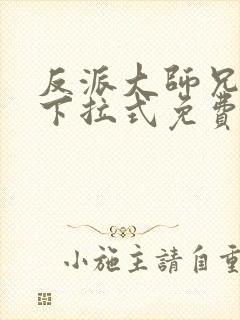 反派大師兄
下拉式免費
小施主請自重